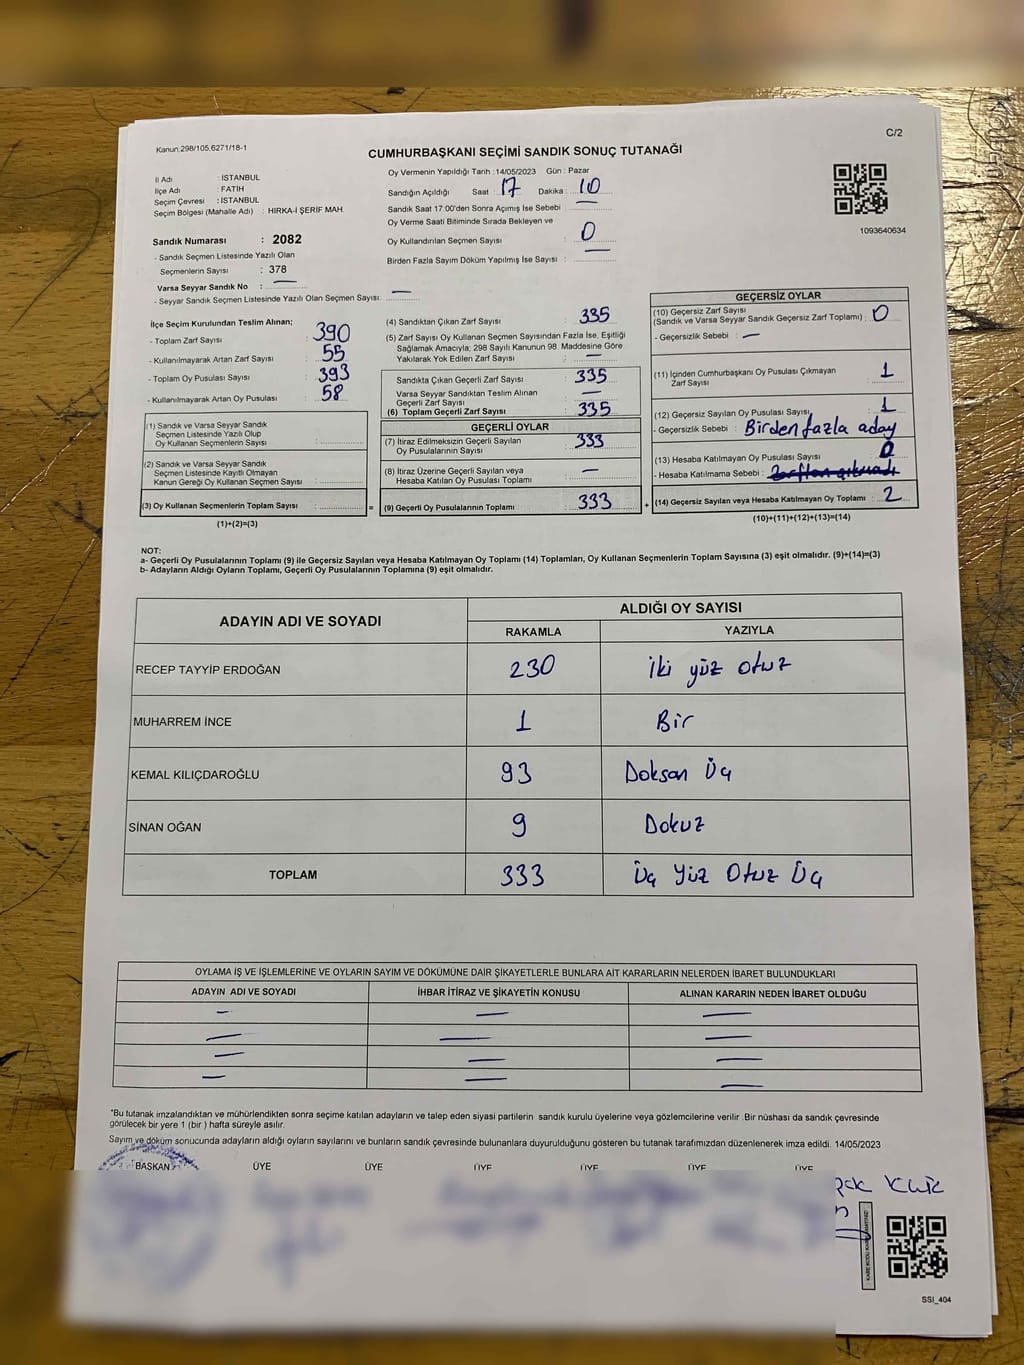 C/2
Kanun:298/105,6271/18-1
CUMHURBAŞKANI SEÇİMİ SANDIK SONUÇ TUTANAĞI
İl Adı : İSTANBUL
İlçe Adı : FATİH
Seçim Çevresi : İSTANBUL
Seçim Bölgesi (Mahalle Adı) : HIRKA-İ ŞERİF MAH.
Sandık Numarası : 2082
- Sandık Seçmen Listesinde Yazılı Olan
Seçmenlerin Sayısı : 378
Varsa Seyyar Sandık No : —
- Seyyar Sandık Seçmen Listesinde Yazılı Olan Seçmen Sayısı: —
Oy Vermenin Yapıldığı Tarih :14/05/2023 Gün : Pazar
Sandığın Açıldığı Saat : 17 Dakika : 10
Sandık Saat 17:00'den Sonra Açımış İse Sebebi : —
Oy Verme Saati Bitiminde Sırada Bekleyen ve
Oy Kullandırılan Seçmen Sayısı : 0
Birden Fazla Sayım Döküm Yapılmış İse Sayısı : —
1093640634
İlçe Seçim Kurulundan Teslim Alınan;
- Toplam Zarf Sayısı : 390
- Kullanılmayarak Artan Zarf Sayısı : 55
- Toplam Oy Pusulası Sayısı : 393
- Kullanılmayarak Artan Oy Pusulası : 58
(1) Sandık ve Varsa Seyyar Sandık
Seçmen Listesinde Yazılı Olup
Oy Kullanan Seçmenlerin Sayısı :
(2) Sandık ve Varsa Seyyar Sandık
Seçmen Listesinde Kayıtlı Olmayan
Kanun Gereği Oy Kullanan Seçmen Sayısı :
(3) Oy Kullanan Seçmenlerin Toplam Sayısı : =
(1)+(2)=(3)
(4) Sandıktan Çıkan Zarf Sayısı : 335
(5) Zarf Sayısı Oy Kullanan Seçmen Sayısından Fazla İse, Eşitliği
Sağlamak Amacıyla; 298 Sayılı Kanunun 98. Maddesine Göre
Yakılarak Yok Edilen Zarf Sayısı : —
Sandıkta Çıkan Geçerli Zarf Sayısı : 335
Varsa Seyyar Sandıktan Teslim Alınan
Geçerli Zarf Sayısı : —
(6) Toplam Geçerli Zarf Sayısı : 335
GEÇERLİ OYLAR
(7) İtiraz Edilmeksizin Geçerli Sayılan
Oy Pusulalarının Sayısı : 333
(8) İtiraz Üzerine Geçerli Sayılan veya
Hesaba Katılan Oy Pusulası Toplamı : —
(9) Geçerli Oy Pusulalarının Toplamı : 333 +
GEÇERSİZ OYLAR
(10) Geçersiz Zarf Sayısı
(Sandık ve Varsa Seyyar Sandık Geçersiz Zarf Toplamı) : 0
- Geçersizlik Sebebi : —
(11) İçinden Cumhurbaşkanı Oy Pusulası Çıkmayan
Zarf Sayısı : 1
(12) Geçersiz Sayılan Oy Pusulası Sayısı : 1
- Geçersizlik Sebebi : Birden fazla aday
(13) Hesaba Katılmayan Oy Pusulası Sayısı : 0
- Hesaba Katılmama Sebebi : Zarftan çıkmadı
(14) Geçersiz Sayılan veya Hesaba Katılmayan Oy Toplamı : 2
(10)+(11)+(12)+(13)=(14)
NOT:
a- Geçerli Oy Pusulalarının Toplamı (9) ile Geçersiz Sayılan veya Hesaba Katılmayan Oy Toplamı (14) Toplamları, Oy Kullanan Seçmenlerin Toplam Sayısına (3) eşit olmalıdır. (9)+(14)=(3)
b- Adayların Aldığı Oyların Toplamı, Geçerli Oy Pusulalarının Toplamına (9) eşit olmalıdır.
ADAYIN ADI VE SOYADI ALDIĞI OY SAYISI
RAKAMLA YAZIYLA
RECEP TAYYİP ERDOĞAN 230 İki yüz otuz
MUHARREM İNCE 1 Bir
KEMAL KILIÇDAROĞLU 93 Doksan Üç
SİNAN OĞAN 9 Dokuz
TOPLAM 333 Üç Yüz Otuz Üç
OYLAMA İŞ VE İŞLEMLERİNE VE OYLARIN SAYIM VE DÖKÜMÜNE DAİR ŞİKAYETLERLE BUNLARA AİT KARARLARIN NELERDEN İBARET BULUNDUKLARI
ADAYIN ADI VE SOYADI İHBAR İTİRAZ VE ŞİKAYETİN KONUSU ALINAN KARARIN NEDEN İBARET OLDUĞU
— — —
— — —
— — —
— — —
*Bu tutanak imzalandıktan ve mühürlendikten sonra seçime katılan adayların ve talep eden siyasi partilerin sandık kurulu üyelerine veya gözlemcilerine verilir. Bir nüshası da sandık çevresinde
görülecek bir yere 1 (bir) hafta süreyle asılır.
Sayım ve döküm sonucunda adayların aldığı oyların sayılarını ve bunların sandık çevresinde bulunanlara duyurulduğunu gösteren bu tutanak tarafımızdan düzenlenerek imza edildi. 14/05/2023
BAŞKAN ÜYE ÜYE ÜYE ÜYE ÜYE ÜYE
SSI_404